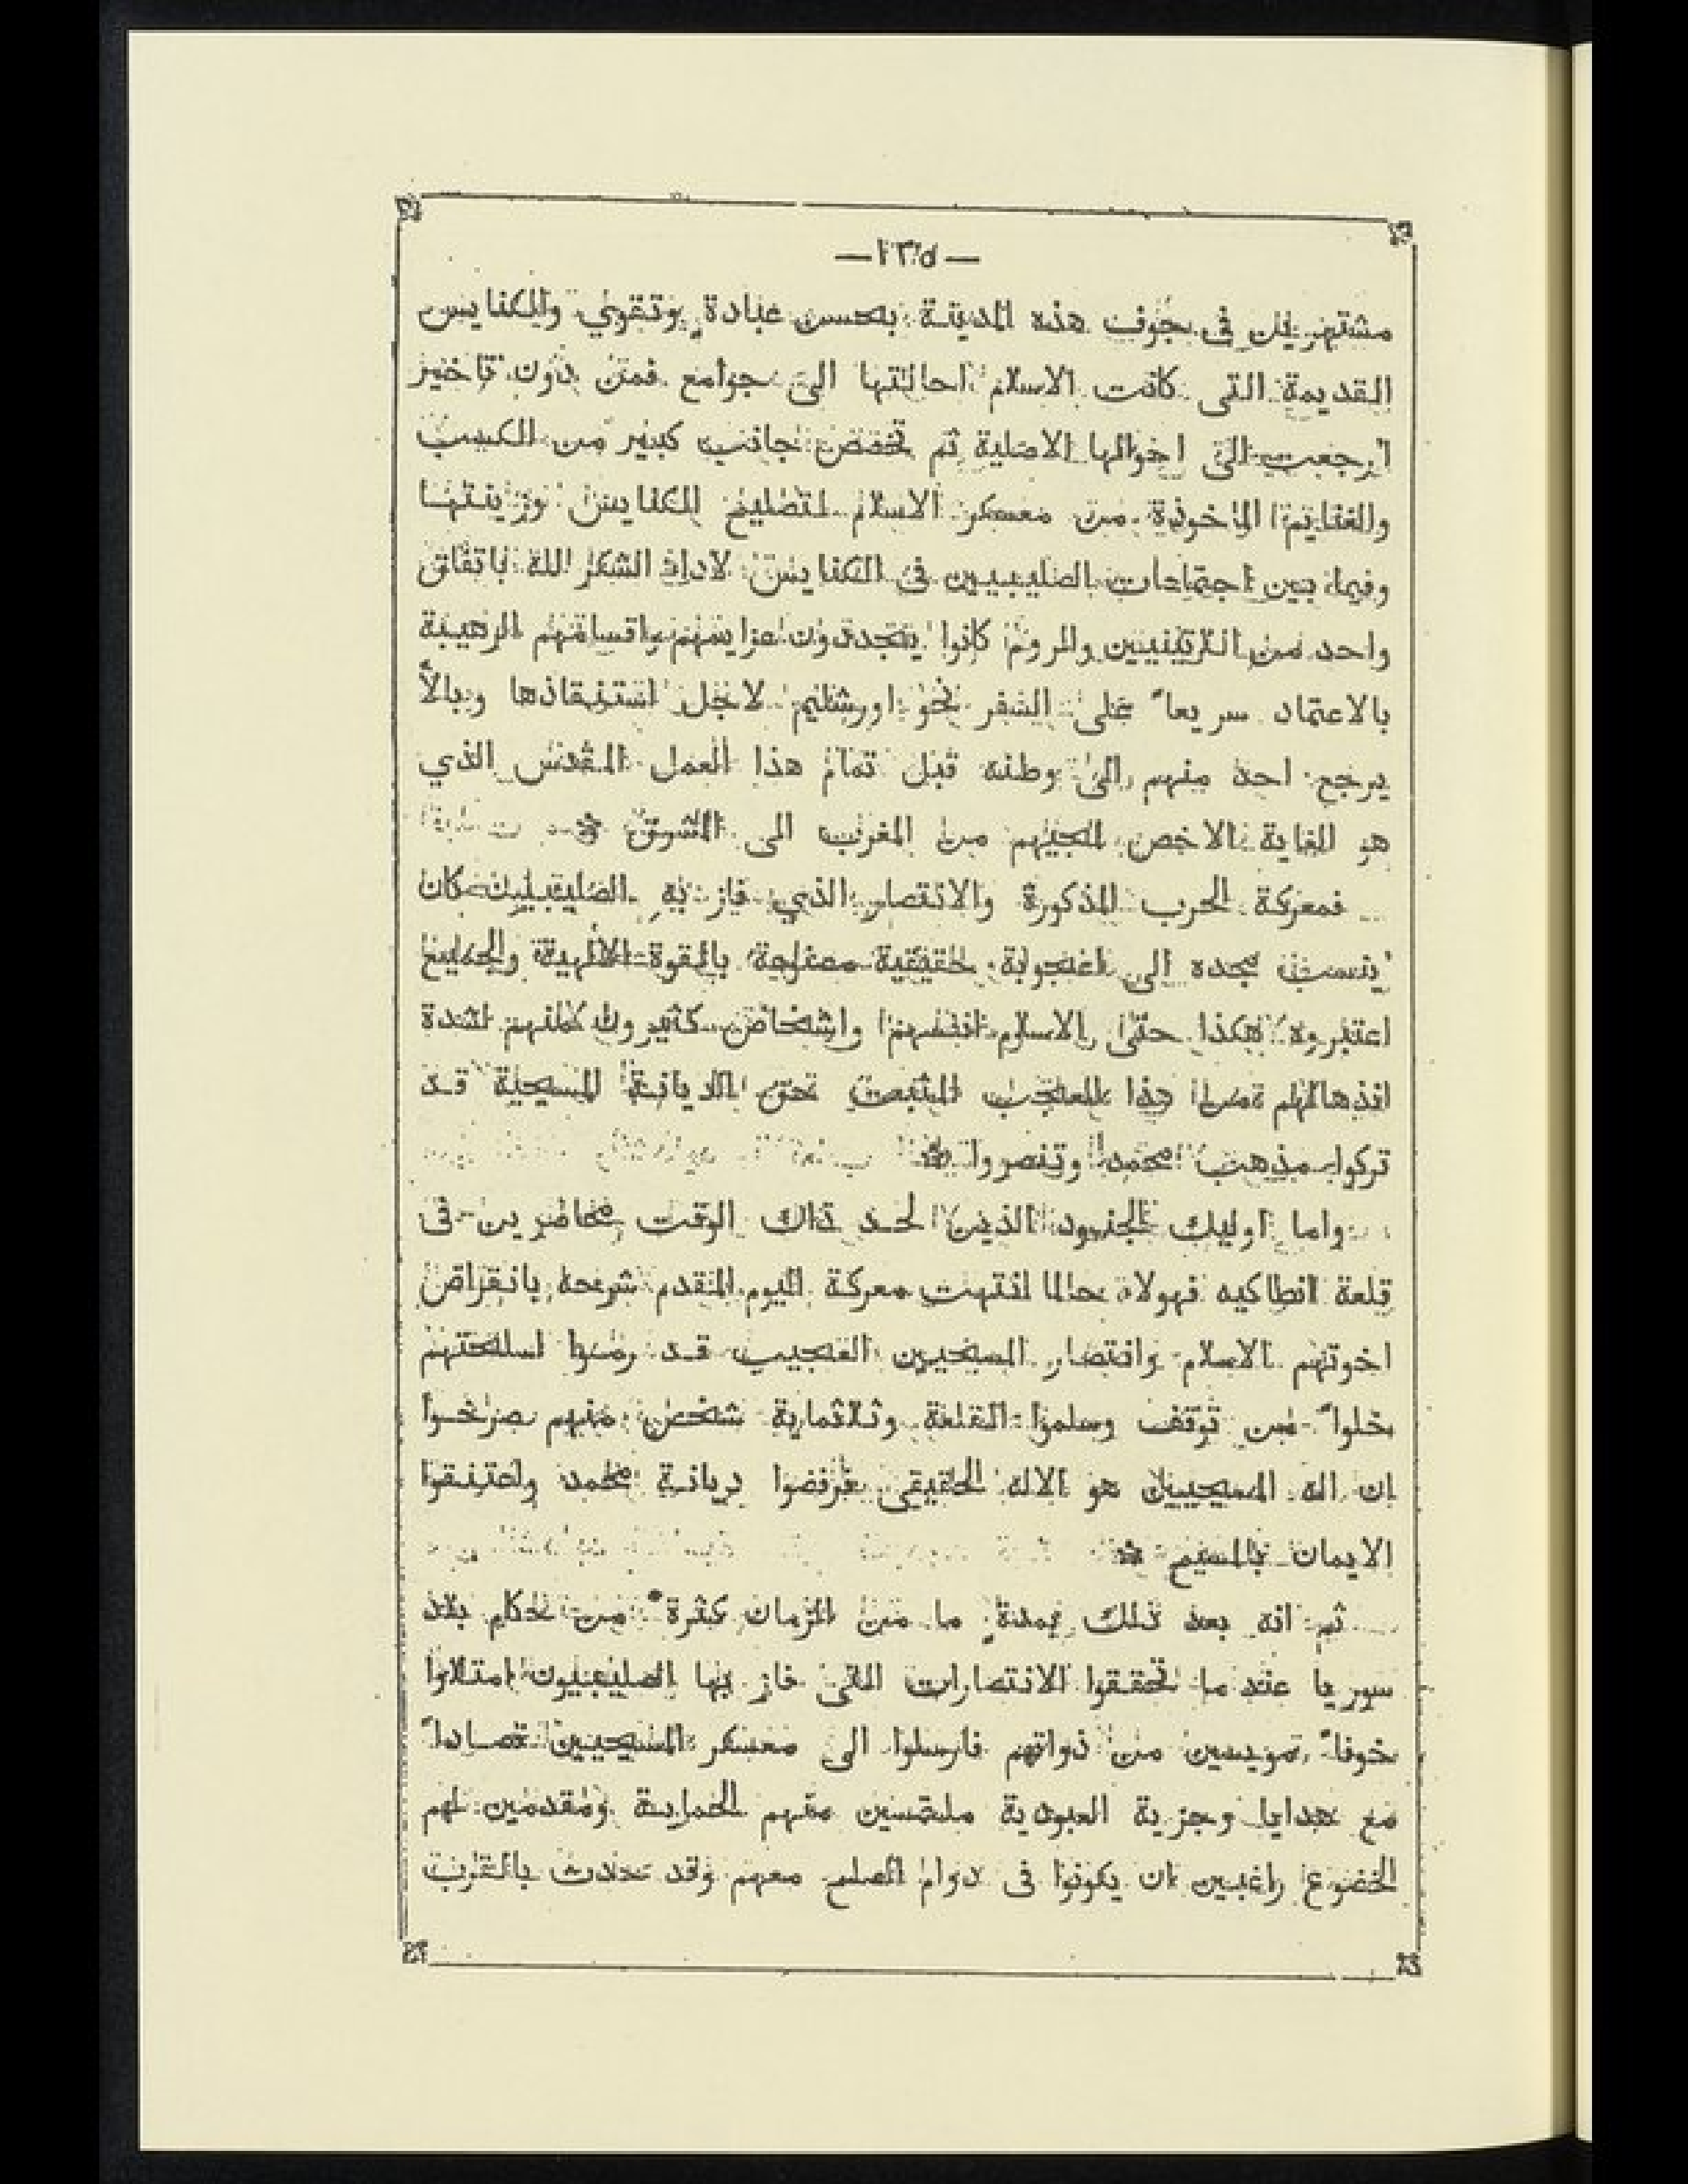 —١٣٥—
مشتهرين فى جوف هذه المدينة بحسن عبادة وتقوي والكنايس
القديمة التى كانت الاسلام احالتها الى جوامع فمن دون تاخير
ارجعت الى احوالها الاصلية ثم تخصص جانب كبير من الكسب
والغنايم الماخوذة من معسكر الاسلام لتصليح الكنايس وزينتها
وفيما بين اجتماعات الصليبيين فى الكنايس لاداء الشكر لله باتفاق
واحد من اللاتينيين والروم كانوا يتجددون عزايمهم واقساماتهم الرهيبة
بالاعتماد سريعاً على السفر نحو اورشليم لاجل استنقاذها وبالاّ
يرجع احد منهم الى وطنه قبل تمام هذا العمل المقدس الذي
هو الغاية الاخص لمجيهم من المغرب الى المشرق
فمعركة الحرب المذكورة والانتصار الذي فاز به الصليبيون كان
ينسب مجده الى اعجوبة حقيقية مصنوعة بالقوة الالهية والجميع
اعتبروه هكذا حتى الاسلام انفسهم واشخاص كثيرون منهم لشدة
انذهالهم من هذا العجب المثبت حق الديانة المسيحية قد
تركوا مذهب محمد وتنصروا
واما اوليك الجنود الذين لحد ذاك الوقت محاضرين فى
قلعة انطاكيه فهولاء حالما انتهت معركة اليوم المتقدم شرحه بانقراض
اخوتهم الاسلام وانتصار المسيحيين العجيب قد رموا اسلحتهم
بخلواً من توقف وسلموا القلعة وثلاثماية شخص منهم صرخوا
ان اله المسيحيين هو الاله الحقيقى فرفضوا ديانة محمد واعتنقوا
الايمان بالمسيح
ثم انه بعد ذلك بمدة ما من الزمان كثرة من حكام بلاد
سوريا عند ما تحققوا الانتصارات التى فاز بها الصليبيون امتلاوا
خوفاً مويسين من ذواتهم فارسلوا الى معسكر المسيحيين قصاداً
مع هدايا وجزية العبودية ملتمسين منهم الحماية ومقدمين لهم
الخضوع راغبين ان يكونوا فى دوام الصلح معهم وقد حدث بالقرب